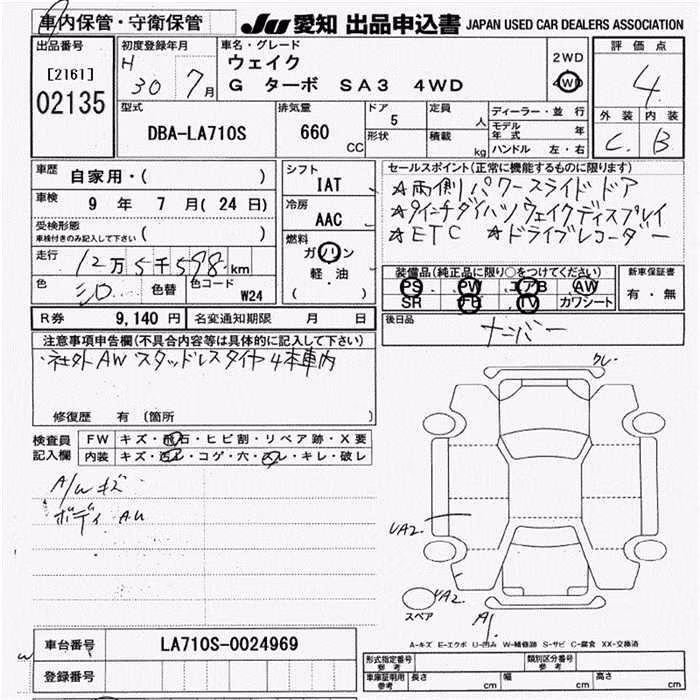 車内保管・守衛保管
JU 愛知 出品申込書 JAPAN USED CAR DEALERS ASSOCIATION
出品番号
[2161]
02135
初度登録年月
H 30 7月
車名・グレード
ウェイク
G ターボ SA3 4WD
2WD
4WD
評価点
4
外装 内装
C B
型式
DBA-LA710S
排気量
660 CC
ドア
5
形状
定員
人
積載
kg
ディーラー・並行
モデル年式 年
ハンドル 左・右
車歴
自家用・( )
車検
9 年 7 月( 24 日)
受検形態
車検付きのみ記入して下さい ( )
走行
12万5千598km
色
シロ
色替
色コード
W24
シフト
IAT
冷房
AAC
燃料
ガソリン
軽・油
( )
セールスポイント(正常に機能するものに限ります)
☆両側パワースライドドア
☆9インチダイハツウェイクディスプレイ
☆ETC ☆ドライブレコーダー
装備品(純正品に限り○をつけてください)
PS PW エアB AW
SR FB TV カワシート
新車保証書
有・無
R券 9,140 円 名変通知期限 月 日
後日品
ナンバー
注意事項申告欄(不具合内容等は具体的に記入して下さい)
・社外AW スタッドレスタイヤ4本車内
修復歴 有〔箇所 〕
検査員記入欄
FW キズ・飛石・ヒビ割・リペア跡・X要
内装 キズ・汚レ・コゲ・穴・スレ・キレ・破レ
A/W キズ
ボディ AU
UA2
UA2
A1
スペア
A-キズ E-エクボ U-凹み W-補修跡 S-サビ C-腐食 XX-交換済
車台番号 LA710S-0024969
登録番号
形式指定番号 参考
類別区分番号 参考
車庫証明用 参考 長さ cm 幅 cm 高さ cm